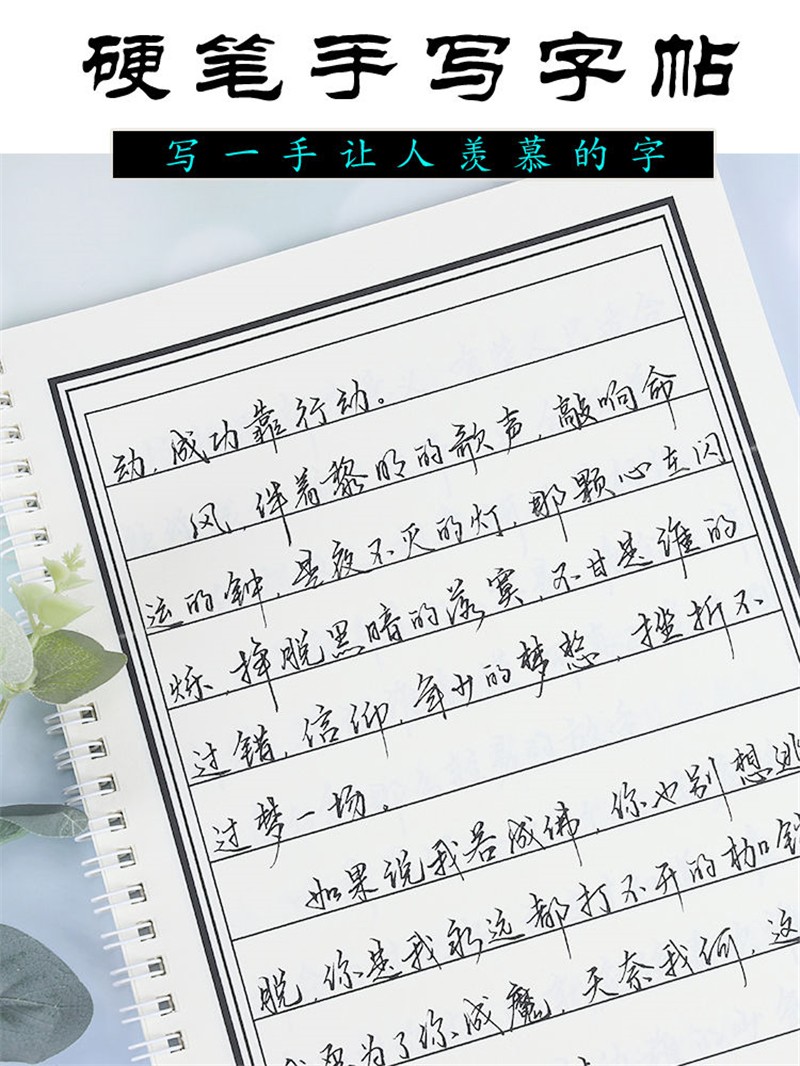 硬笔手写字帖
写一手让人羡慕的字
动，成功靠行动。
风，伴着黎明的歌声，敲响命
运的钟，是夜不灭的灯，那颗心在闪
烁，挣脱黑暗的落寞，不甘是谁的
过错，信仰，年少的梦想，挫折不
过梦一场。
如果说我若成佛，你也别想逃
脱，你是我永远都打不开的枷锁
我要为了你成魔，天奈我何，这